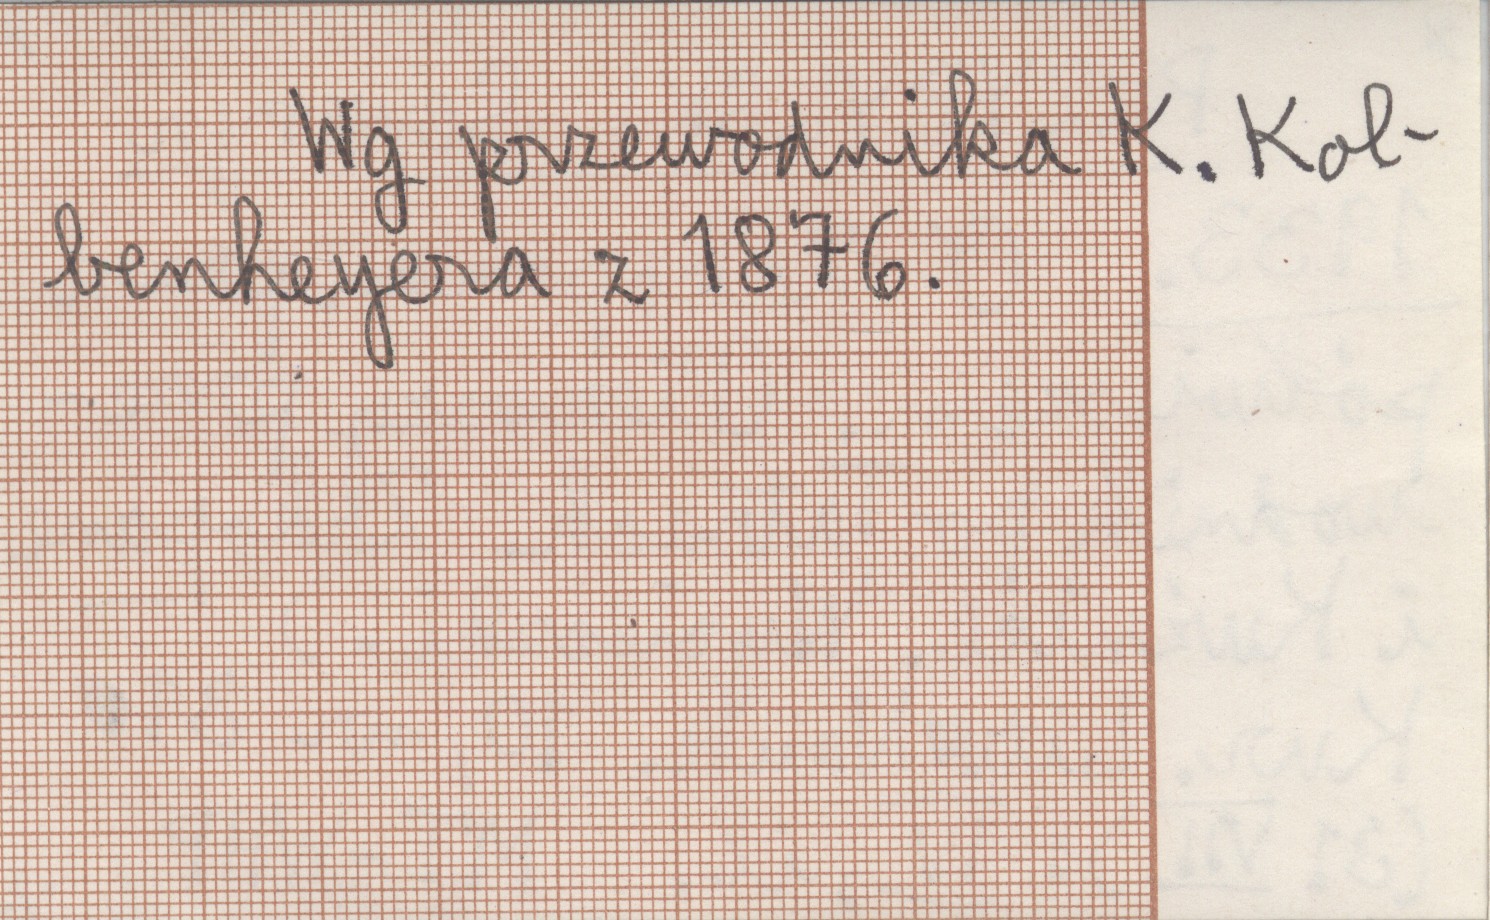 Wg przewodnika K. Kol-
benheyera z 1876.